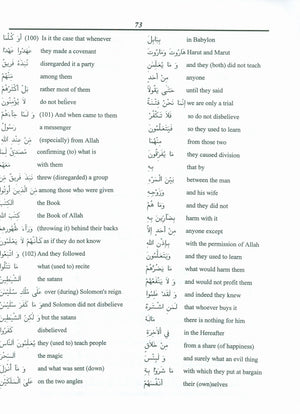 73
اَوَ كُلَّمَا (100) Is it the case that whenever
عٰهَدُوْا عَهْدًا they made a covenant
نَّبَذَهٗ فَرِيْقٌ disregarded it a party
مِّنْهُمْ among them
بَلْ اَكْثَرُهُمْ rather most of them
لَا يُؤْمِنُوْنَ do not believe
وَ لَمَّا جَآءَهُمْ (101) And when came to them
رَسُوْلٌ a messenger
مِّنْ عِنْدِ اللّٰهِ (especially) from Allah
مُصَدِّقٌ لِّمَا confirming (to) what is
مَعَهُمْ with them
نَبَذَ فَرِيْقٌ threw (disregarded) a group
مِّنَ الَّذِيْنَ اُوْتُوا among those who were given
الْكِتٰبَ the Book
كِتٰبَ اللّٰهِ the Book of Allah
وَرَآءَ ظُهُوْرِهِمْ (throwing it) behind their backs
كَاَنَّهُمْ لَا يَعْلَمُوْنَ as if they do not know
وَ اتَّبَعُوْا (102) And they followed
مَا تَتْلُوا what (used to) recite
الشَّيٰطِيْنُ the satans
عَلٰى مُلْكِ سُلَيْمٰنَ over (during) Solomon's reign
وَ مَا كَفَرَ سُلَيْمٰنُ and Solomon did not disbelieve
وَ لٰكِنَّ الشَّيٰطِيْنَ but the satans
كَفَرُوْا disbelieved
يُعَلِّمُوْنَ النَّاسَ they (used to) teach people
السِّحْرَ the magic
وَ مَآ اُنْزِلَ and what was sent (down)
عَلَى الْمَلَكَيْنِ on the two angles
بِبَابِلَ in Babylon
هَارُوْتَ وَ مَارُوْتَ Harut and Marut
وَ مَا يُعَلِّمٰنِ and they (both) did not teach
مِنْ اَحَدٍ anyone
حَتّٰى يَقُوْلَآ until they said
اِنَّمَا نَحْنُ فِتْنَةٌ we are only a trial
فَلَا تَكْفُرْ so do not disbelieve
فَيَتَعَلَّمُوْنَ so they used to learn
مِنْهُمَا from those two
مَا يُفَرِّقُوْنَ they caused division
بِهٖ that by
بَيْنَ الْمَرْءِ between the man
وَ زَوْجِهٖ and his wife
وَ مَا هُمْ and they did not
بِضَآرِّيْنَ بِهٖ harm with it
مِنْ اَحَدٍ اِلَّا anyone except
بِاِذْنِ اللّٰهِ with the permission of Allah
وَ يَتَعَلَّمُوْنَ and they used to learn
مَا يَضُرُّهُمْ what would harm them
وَ لَا يَنْفَعُهُمْ and would not profit them
وَ لَقَدْ عَلِمُوْا and indeed they knew
لَمَنِ اشْتَرٰىهُ that whoever buys it
مَا لَهٗ there is nothing for him
فِي الْاٰخِرَةِ in the Hereafter
مِنْ خَلَاقٍ from a share (of happiness)
وَ لَبِئْسَ and surely what an evil thing
مَا شَرَوْا بِهٖ with which they put at bargain
اَنْفُسَهُمْ their (own)selves